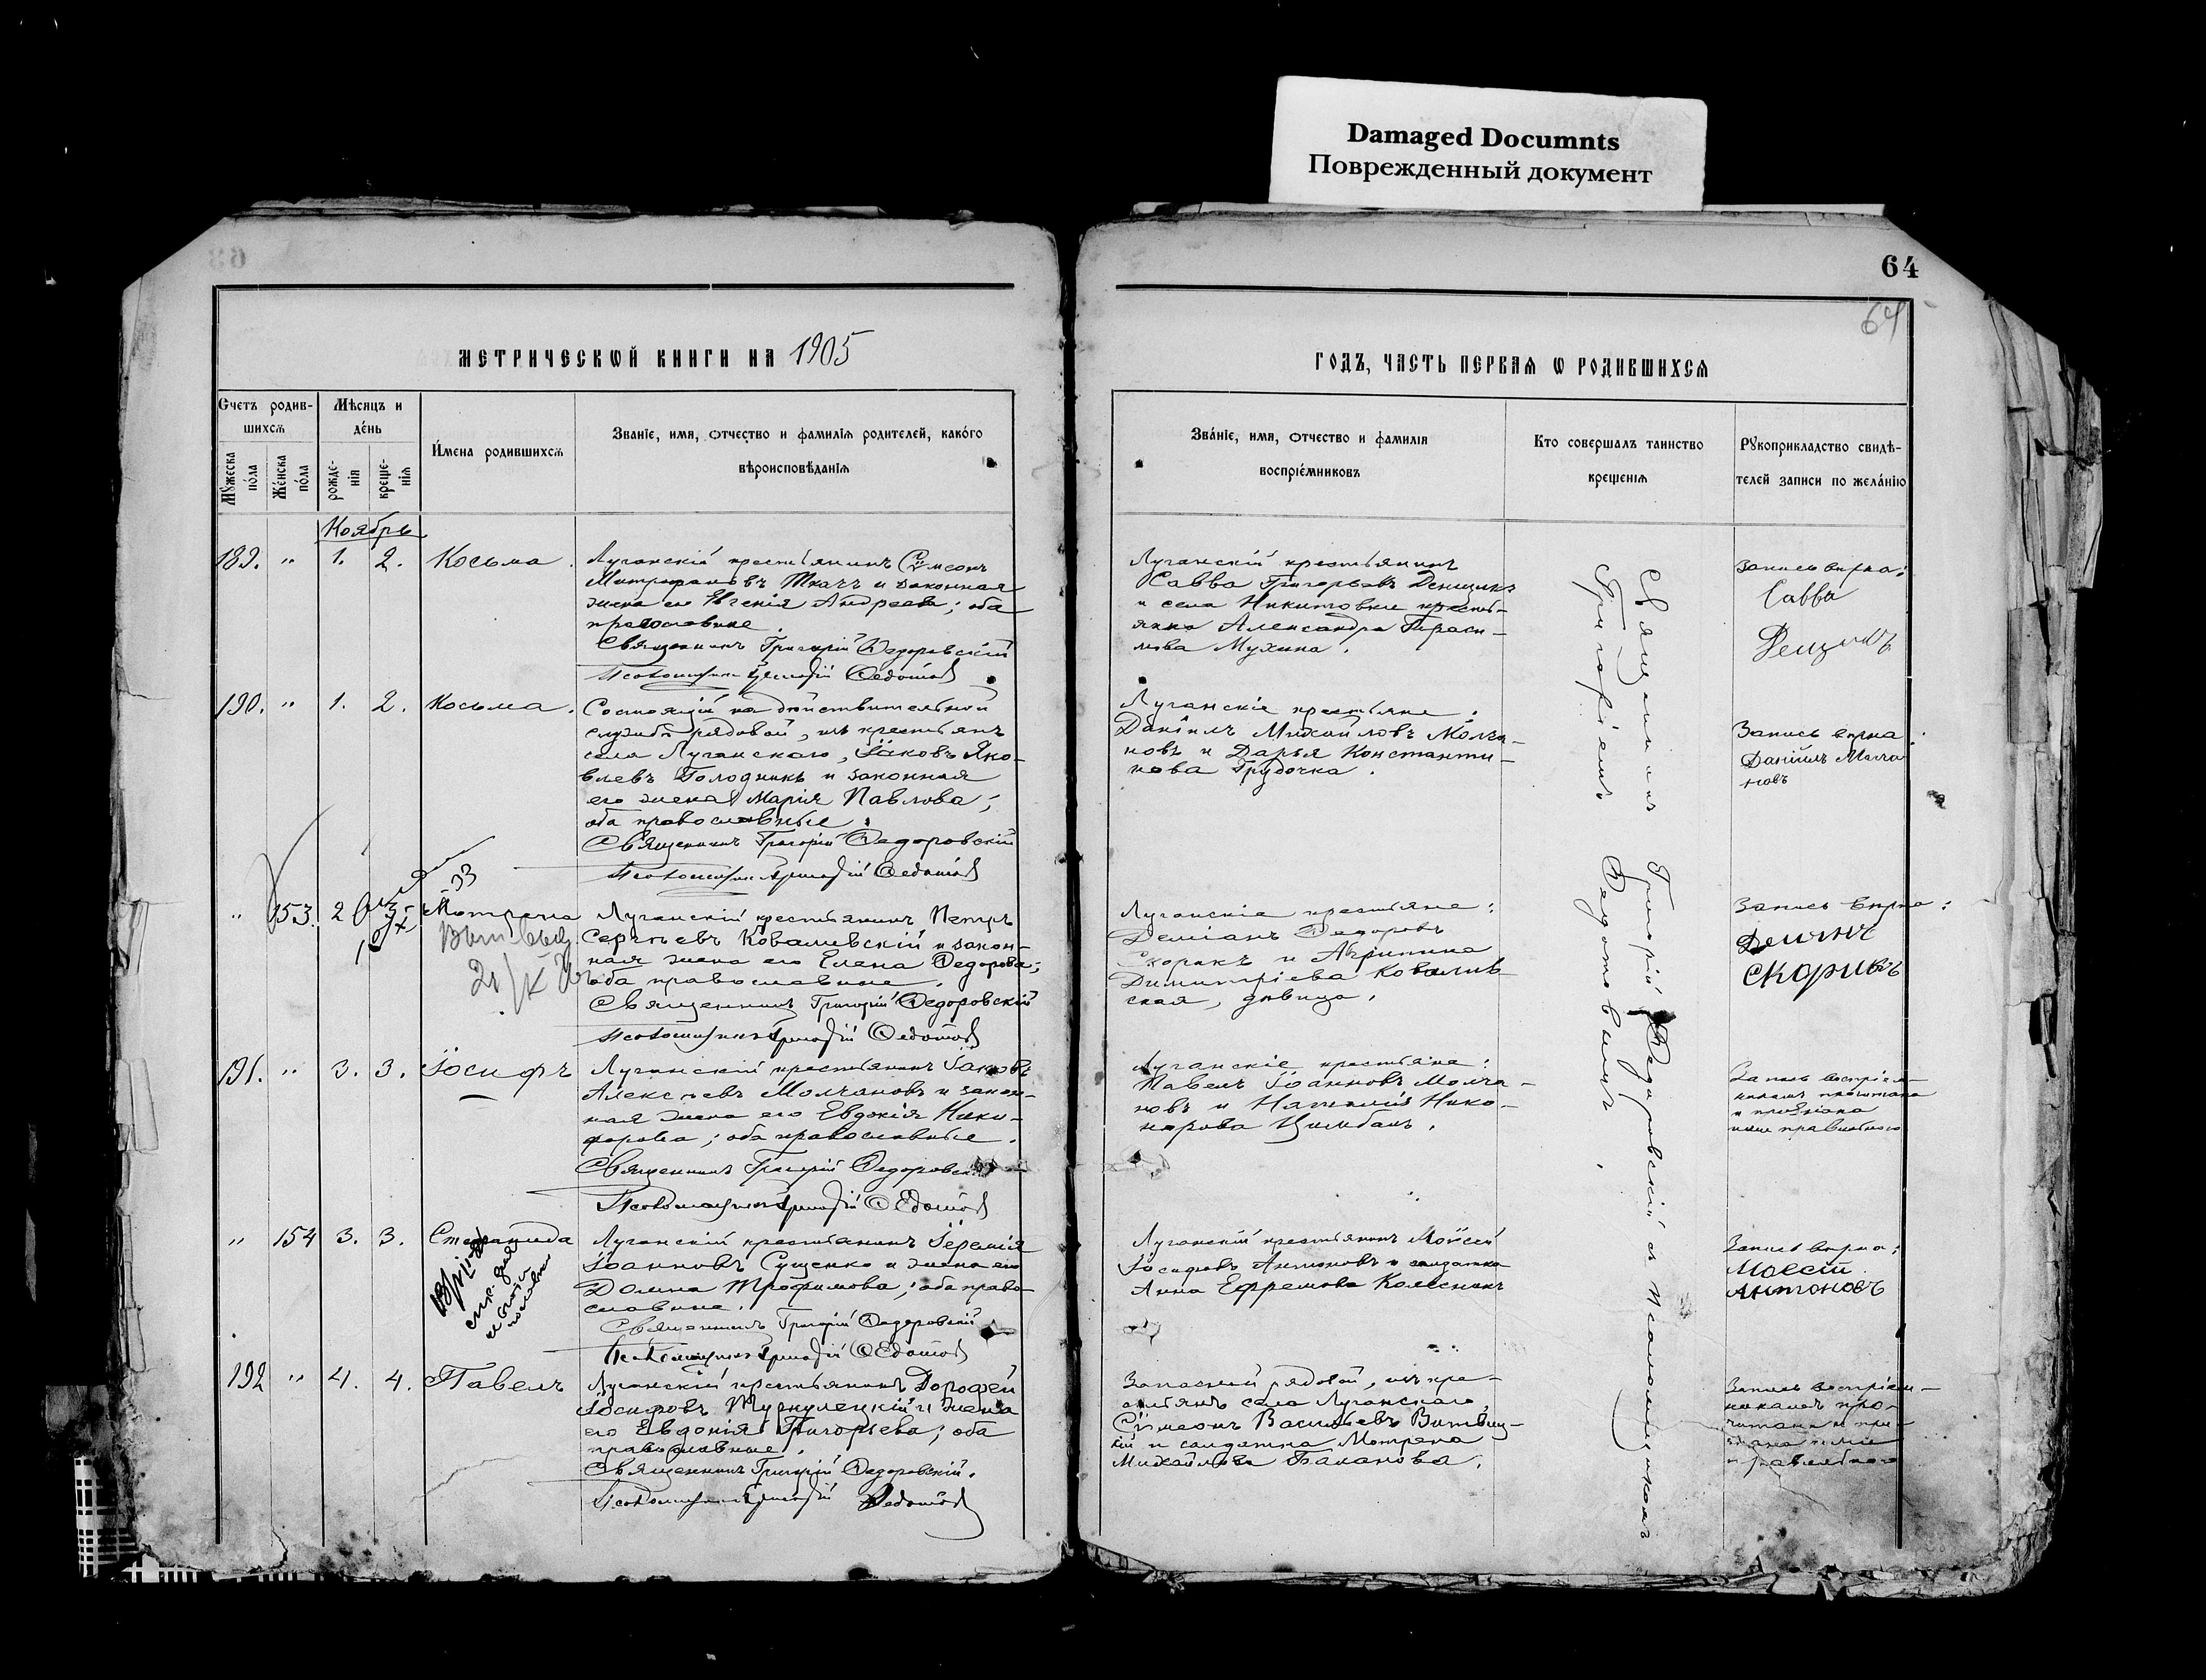 Damaged Documnts
Поврежденный документ
64
64
МЕТРИЧЕСКѠЙ КНИГИ НА 1905
ГОДЪ, ЧАСТЬ ПЕРВАЯ Ѡ РОДИВШИХСЯ
Счетъ родив-
шихся
Мужеска пола
Женска пола
Мѣсяцъ и
день
рожде-
нія
креще-
нія
Имена родившихся
Званіе, имя, отчество и фамилія родителей, какого
вѣроисповѣданія
Званіе, имя, отчество и фамилія
воспріемниковъ
Кто совершалъ таинство
крещенія
Рукоприкладство свидѣ-
телей записи по желанію
Ноябрь
189. " 1. 2. Косьма.
Луганскій крестьянинъ Сѵмеонъ
Митрофановъ Ткачъ и законная
жена его Евгенія Андреева; оба
православные.
Священникъ Григорій Ѳедоровскій
Псаломщикъ Григорій Ѳедотовъ
Луганскій крестьянинъ
Савва Григорьевъ Денщикъ
и села Никитовки кресть-
янка Александра Гераси-
мова Мухина.
Запись вѣрна:
Савва
190. " 1. 2. Косьма.
Состоящій на дѣйствительной
службѣ рядовой, изъ крестьянъ
села Луганскаго, Іаковъ Яко-
влевъ Голодникъ и законная
его жена Марія Павлова;
оба православные.
Священникъ Григорій Ѳедоровскій
Псаломщикъ Григорій Ѳедотовъ
Луганскіе крестьяне:
Даніилъ Михайловъ Молча-
новъ и Дарья Константи-
нова Грудочка.
Запись вѣрна:
Даніилъ Молча
новъ
" 153. 2 Мотрона
Луганскій крестьянинъ Петръ
Сергѣевъ Ковалевскій и закон-
ная жена его Елена Ѳедорова;
оба православные.
Священникъ Григорій Ѳедоровскій
Псаломщикъ Григорій Ѳедотовъ
Луганскіе крестьяне:
Деміанъ Ѳедоровъ
Скорикъ и Агрипина
Димитріева Ковалев-
ская, дѣвица.
Запись вѣрна:
Демянъ
Скорикъ
191. " 3. 3. Іосифъ
Луганскій крестьянинъ Іаковъ
Алексѣевъ Молчановъ и закон-
ная жена его Евдокія Ники-
форова; оба православные.
Священникъ Григорій Ѳедоровскій
Псаломщикъ Григорій Ѳедотовъ
Луганскіе крестьяне:
Павелъ Іоанновъ Молча-
новъ и Наталія Нико-
норова Цимбалъ.
Запись воспріем-
никамъ прочитана
и признана
ими правильною
" 154 3. 3. Стефанида
Луганскій крестьянинъ Іеремія
Іоанновъ Сущенко и жена его
Домна Трофимова; оба право-
славные.
Священникъ Григорій Ѳедоровскій
Псаломщикъ Григорій Ѳедотовъ
Луганскій крестьянинъ Мойсей
Іосифовъ Антоновъ и солдатка
Анна Ефремова Колесникъ
Запись вѣрна:
Моесій
Антоновъ
192 " 4. 4. Павелъ
Луганскій крестьянинъ Дорофей
Іосифовъ и жена
его Евдокія Григорьева; оба
православные.
Священникъ Григорій Ѳедоровскій.
Псаломщикъ Григорій Ѳедотовъ
Запасный рядовой, изъ кре-
стьянъ села Луганскаго,
Сѵмеонъ Васильевъ Витвиц-
кій и солдатка Мотрона
Михайлова Баканова.
Запись воспріем-
никамъ про-
читана и при-
знана ими
правильною
Священникъ Григорій Ѳедоровскій съ Псаломщикомъ
Григоріемъ Ѳедотовымъ.